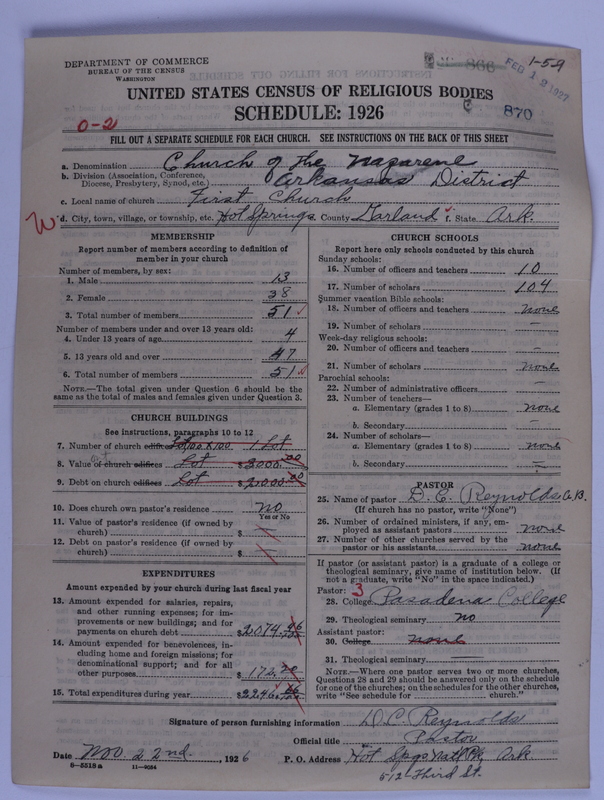 DEPARTMENT OF COMMERCE
BUREAU OF THE CENSUS
WASHINGTON
866
FEB 19 1927
1-59
UNITED STATES CENSUS OF RELIGIOUS BODIES
SCHEDULE: 1926
870
0-2
FILL OUT A SEPARATE SCHEDULE FOR EACH CHURCH. SEE INSTRUCTIONS ON THE BACK OF THIS SHEET
a. Denomination Church of the Nazarene
b. Division (Association, Conference, Diocese, Presbytery, Synod, etc.) Arkansas District
c. Local name of church First Church
d. City, town, village, or township, etc. Hot Springs County Garland State Ark.
MEMBERSHIP
Report number of members according to definition of member in your church
Number of members, by sex:
1. Male 13
2. Female 38
3. Total number of members 51
Number of members under and over 13 years old:
4. Under 13 years of age 4
5. 13 years old and over 47
6. Total number of members 51
NOTE.—The total given under Question 6 should be the same as the total of males and females given under Question 3.
CHURCH BUILDINGS
See instructions, paragraphs 10 to 12
7. Number of church edifices Lot 100 x 100 1 Lot
8. Value of church edifices Lot $3000.00
9. Debt on church edifices Lot $2,000.00
10. Does church own pastor's residence? No
Yes or No
11. Value of pastor's residence (if owned by church) $
12. Debt on pastor's residence (if owned by church) $
EXPENDITURES
Amount expended by your church during last fiscal year
13. Amount expended for salaries, repairs, and other running expenses; for improvements or new buildings; and for payments on church debt $2074.46
14. Amount expended for benevolences, including home and foreign missions; for denominational support; and for all other purposes $172.20
15. Total expenditures during year $2246.66
CHURCH SCHOOLS
Report here only schools conducted by this church
Sunday schools:
16. Number of officers and teachers 10
17. Number of scholars 104
Summer vacation Bible schools:
18. Number of officers and teachers none
19. Number of scholars –
Week-day religious schools:
20. Number of officers and teachers –
21. Number of scholars none
Parochial schools:
22. Number of administrative officers –
23. Number of teachers—
a. Elementary (grades 1 to 8) none
b. Secondary –
24. Number of scholars—
a. Elementary (grades 1 to 8) none
b. Secondary –
PASTOR
25. Name of pastor D. C. Reynolds A.B.
(If church has no pastor, write "None")
26. Number of ordained ministers, if any, employed as assistant pastors none
27. Number of other churches served by the pastor or his assistants none
If pastor (or assistant pastor) is a graduate of a college or theological seminary, give name of institution below. (If not a graduate, write "No" in the space indicated.)
Pastor: 3
28. College Pasadena College
29. Theological seminary no
Assistant pastor:
30. College none
31. Theological seminary
NOTE.—Where one pastor serves two or more churches, Questions 28 and 29 should be answered only on the schedule for one of the churches; on the schedules for the other churches, write "See schedule for church."
Signature of person furnishing information D. C. Reynolds
Official title Pastor
Date Nov 22nd, 1926 P. O. Address Hot Spgs Natl Pk, Ark.
512 Third St.
8—5518 a 11—9034